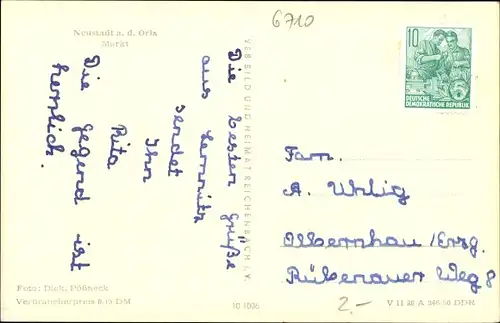 Neustadt a. d. Orla
Markt
6710
Die besten Grüße
aus Lemnitz
sendet
Ihn
Rita
Die Gegend ist
herrlich.
VEB BILD UND HEIMAT REICHENBACH I. V.
10
DEUTSCHE
DEMOKRATISCHE REPUBLIK
Fam.
A. Uhlig
Olbernhau /Erzg.
Rübenauer Weg 8
Foto: Dick, Pößneck
Verbraucherpreis 0,15 DM
10 1036
2.-
V 11 28 A 340/60 DDR